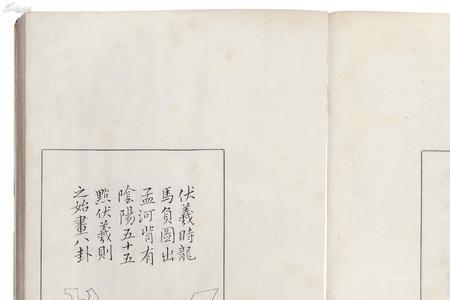 伏羲時龍
馬負圖出
孟河背有
陰陽五十五
點伏羲則
之始畫八卦